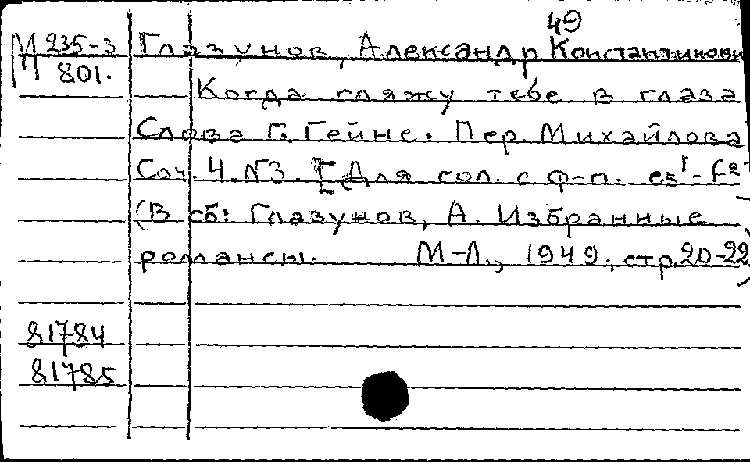 49
М 235-3 Глазунов, Александр Константинови
П 801.
Когда гляжу тебе в глаза
Слова Г. Гейне. Пер. Михайлова
Соч. 4. №3. [Для гол. с ф-п. es¹-f²
(В сб: Глазунов, А. Избранные
романсы. М-Л., 1949, стр. 20-22)
81784
81785